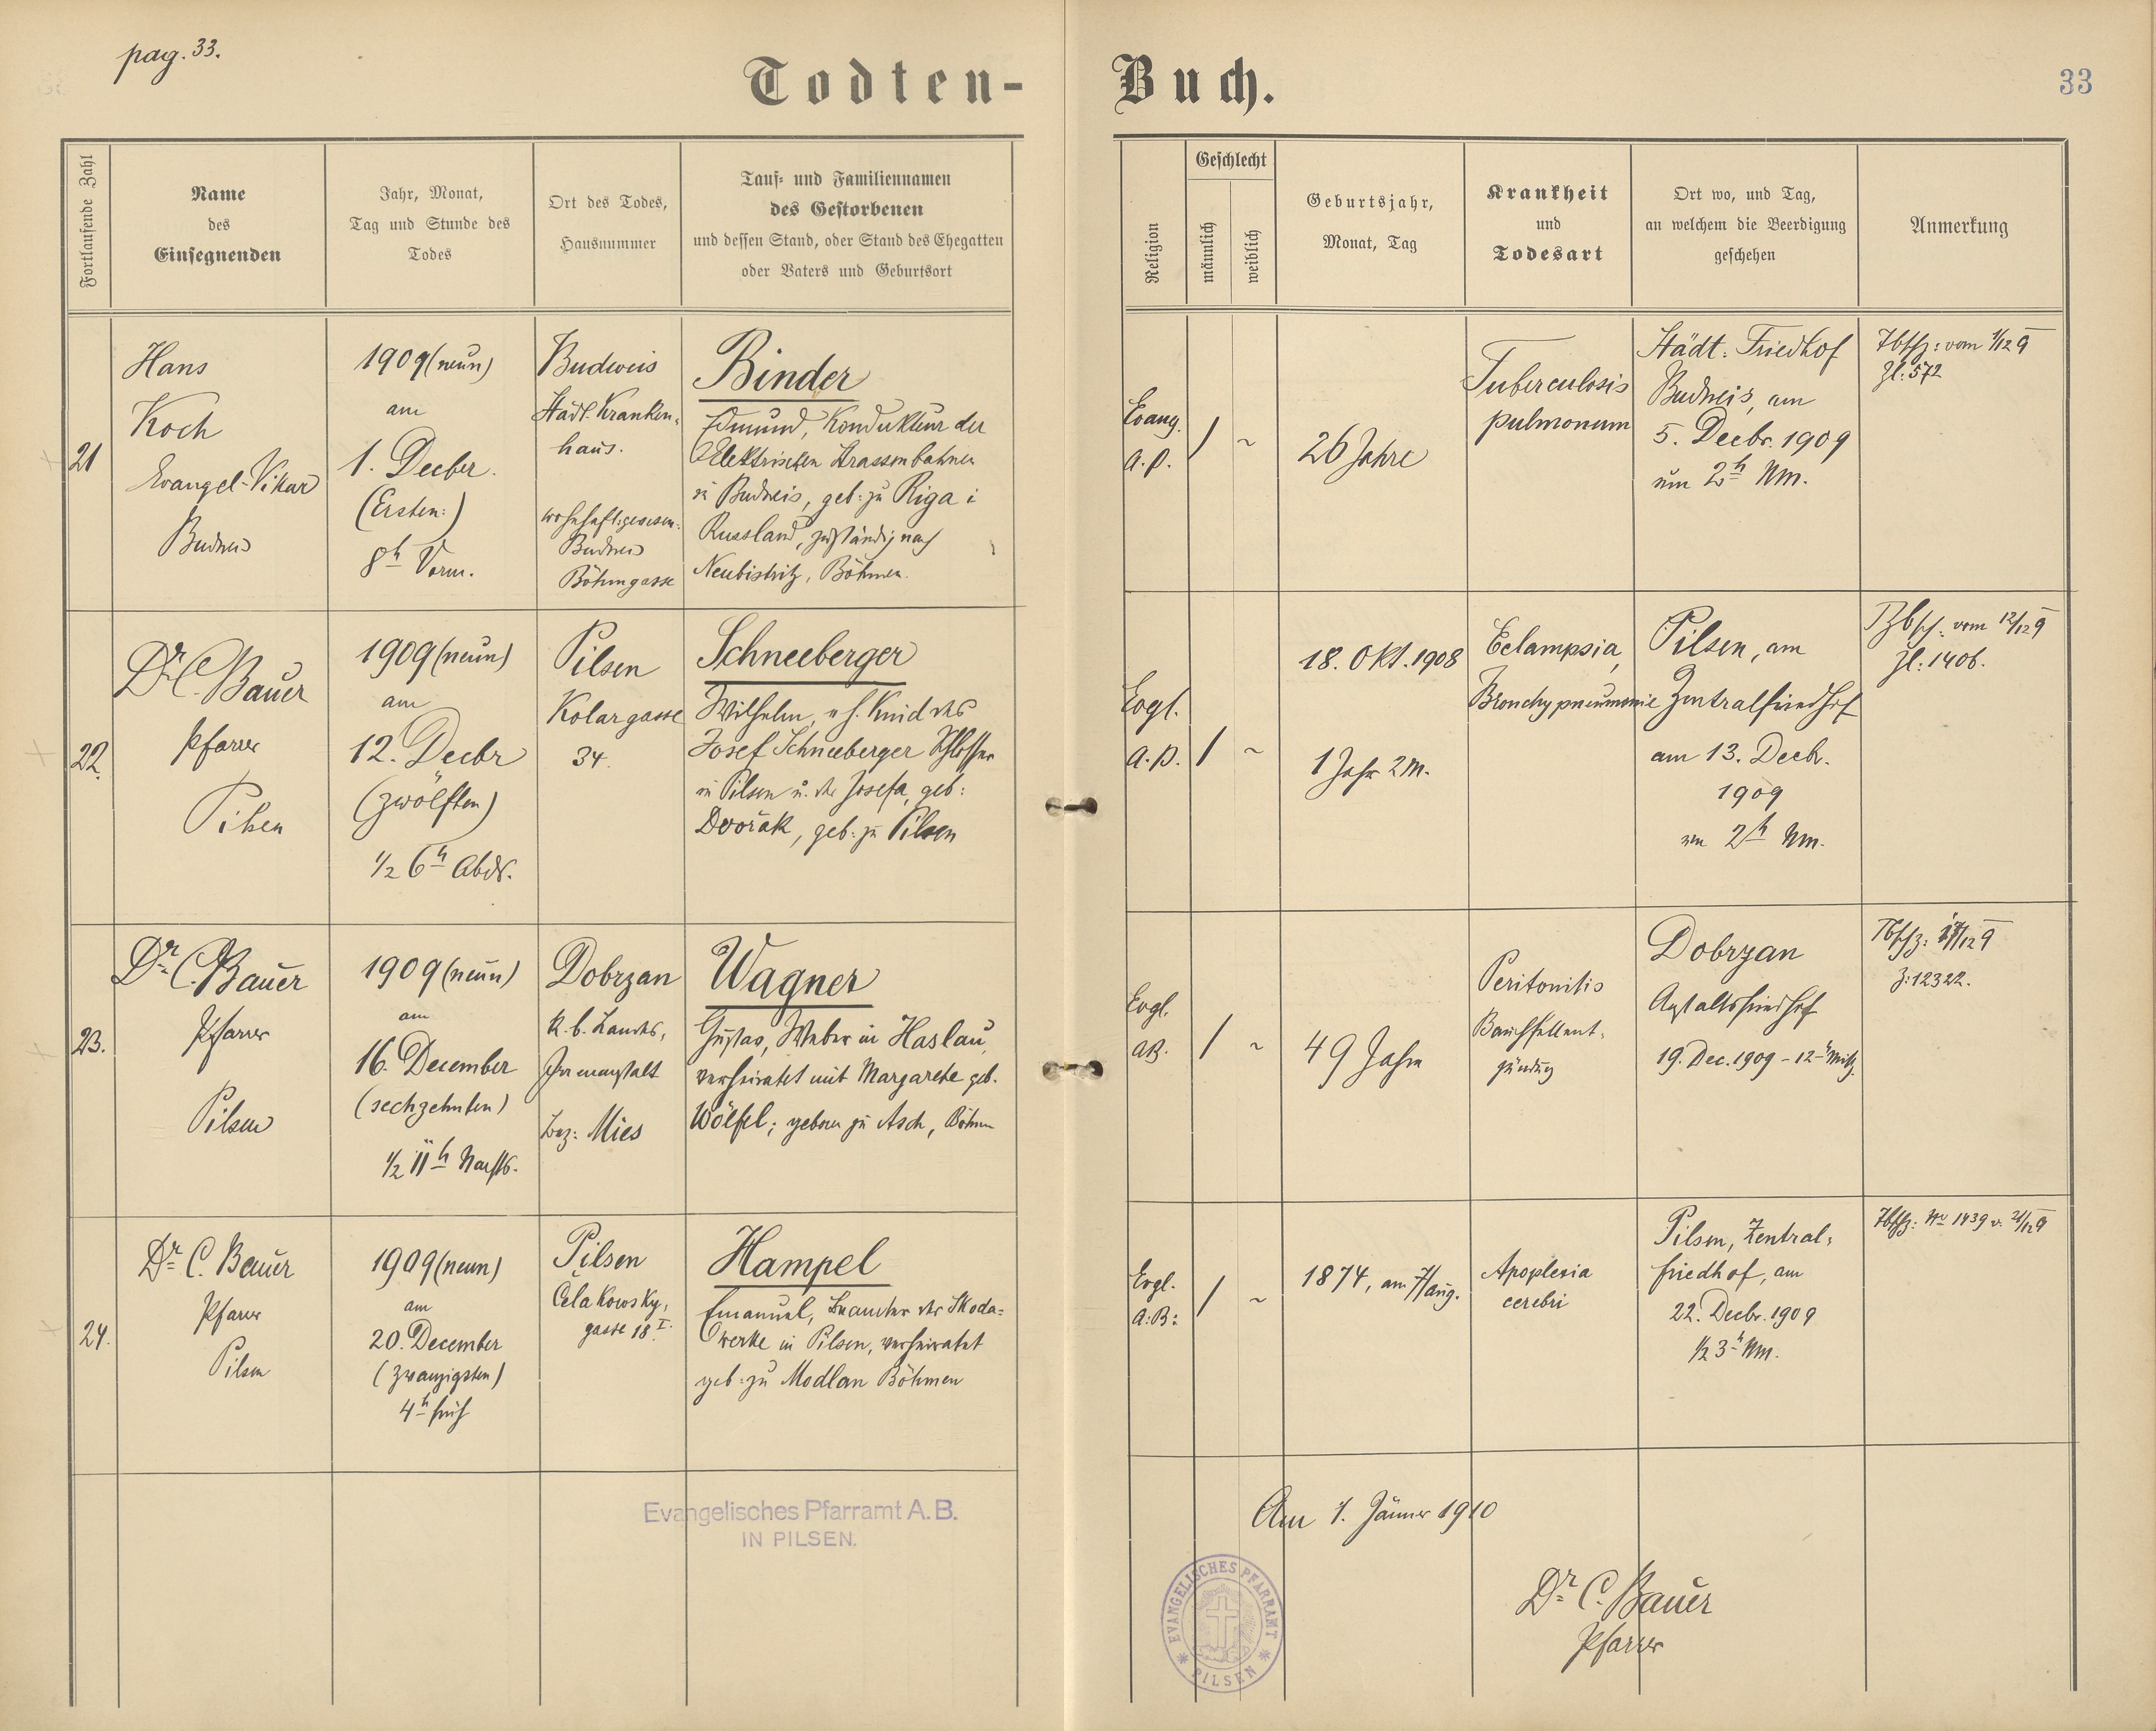 pag. 33.
Todten-
Buch.
33
Fortlaufende Zahl
Name
des
Einsegnenden
Jahr, Monat,
Tag und Stunde des
Todes
Ort des Todes,
Hausnummer
Tauf- und Familiennamen
des Gestorbenen
und dessen Stand, oder Stand des Ehegatten
oder Vaters und Geburtsort
Religion
Geschlecht
männlich
weiblich
Geburtsjahr,
Monat, Tag
Krankheit
und
Todesart
Ort wo, und Tag,
an welchem die Beerdigung
geschehen
Anmerkung
21
Hans
Koch
Evangel-Vikar
Budweis
1909 (neun)
am
1. Decber.
(Ersten:)
8h Vorm.
Budweis
Städt. Kranken-
haus.
wohnhaft gewesen:
Budweis
Böhmgasse
Binder
Edmund, Kondukteur der
Elektrischen Strassenbahnen
in Budweis, geb: zu Riga i
Russland, zuständig nach
Neubistritz, Böhmen.
Evang.
A.B.
/
~
26 Jahre
Tuberculosis
pulmonum
Städt. Friedhof
Budweis, am
5. Decbr. 1909
um 2h Nm.
Tbschz: vom 1/12 9
Zl: 572
22.
Dr. C. Bauer
Pfarrer
Pilsen
1909 (neun)
am
12. Decbr
(zwölften)
1/2 6h Abds.
Pilsen
Kolargasse
34.
Schneeberger
Wilhelm, eh. Kind des
Josef Schneeberger Schlosser
in Pilsen u. der Josefa, geb:
Dvořak, geb: zu Pilsen
Evgl.
A.B.
/
~
18. Okt. 1908
1 Jahr 2 M.
Eclampsia,
Bronchypneumonie
Pilsen, am
Zentralfriedhof
am 13. Decbr.
1909
um 2h Nm.
vom 12/12 9
Zl: 1406.
23.
Dr. C. Bauer
Pfarrer
Pilsen
1909 (neun)
am
16. December
(sechzehnten)
1/2 11h Nachts.
Dobrzan
k. b. Landes-
Irrenanstalt
Bez: Mies
Wagner
Gustav, Weber in Haslau,
verheiratet mit Margarete geb.
Wölfel; geboren zu Asch, Böhmen
Evgl.
AB.
/
~
49 Jahre
Peritonitis
Bauchfellent-
zündung
Dobrzan
Anstaltsfriedhof
19. Dec. 1909 - 12h Mittg.
Tbschz: 17/12 9
Z: 12322.
24.
Dr. C. Bauer
Pfarrer
Pilsen
1909 (neun)
am
20. December
(zwanzigsten)
4h früh
Pilsen
Čelakowsky-
gasse 18 I.
Hampel
Emanuel, Beamter der Skoda-
werke in Pilsen, verheiratet
geb: zu Modlan Böhmen
Evgl.
A:B:
/
~
1874, am 7/Aug.
Apoplexia
cerebri
Pilsen, Zentral-
friedhof, am
22. Decbr. 1909
1/2 3h Nm.
Tbschz: No 1439 v. 21/12 9
Evangelisches Pfarramt A.B.
IN PILSEN.
Am 1. Jänner 1910
Dr. C. Bauer
Pfarrer
EVANGELISCHES PFARRAMT
PILSEN